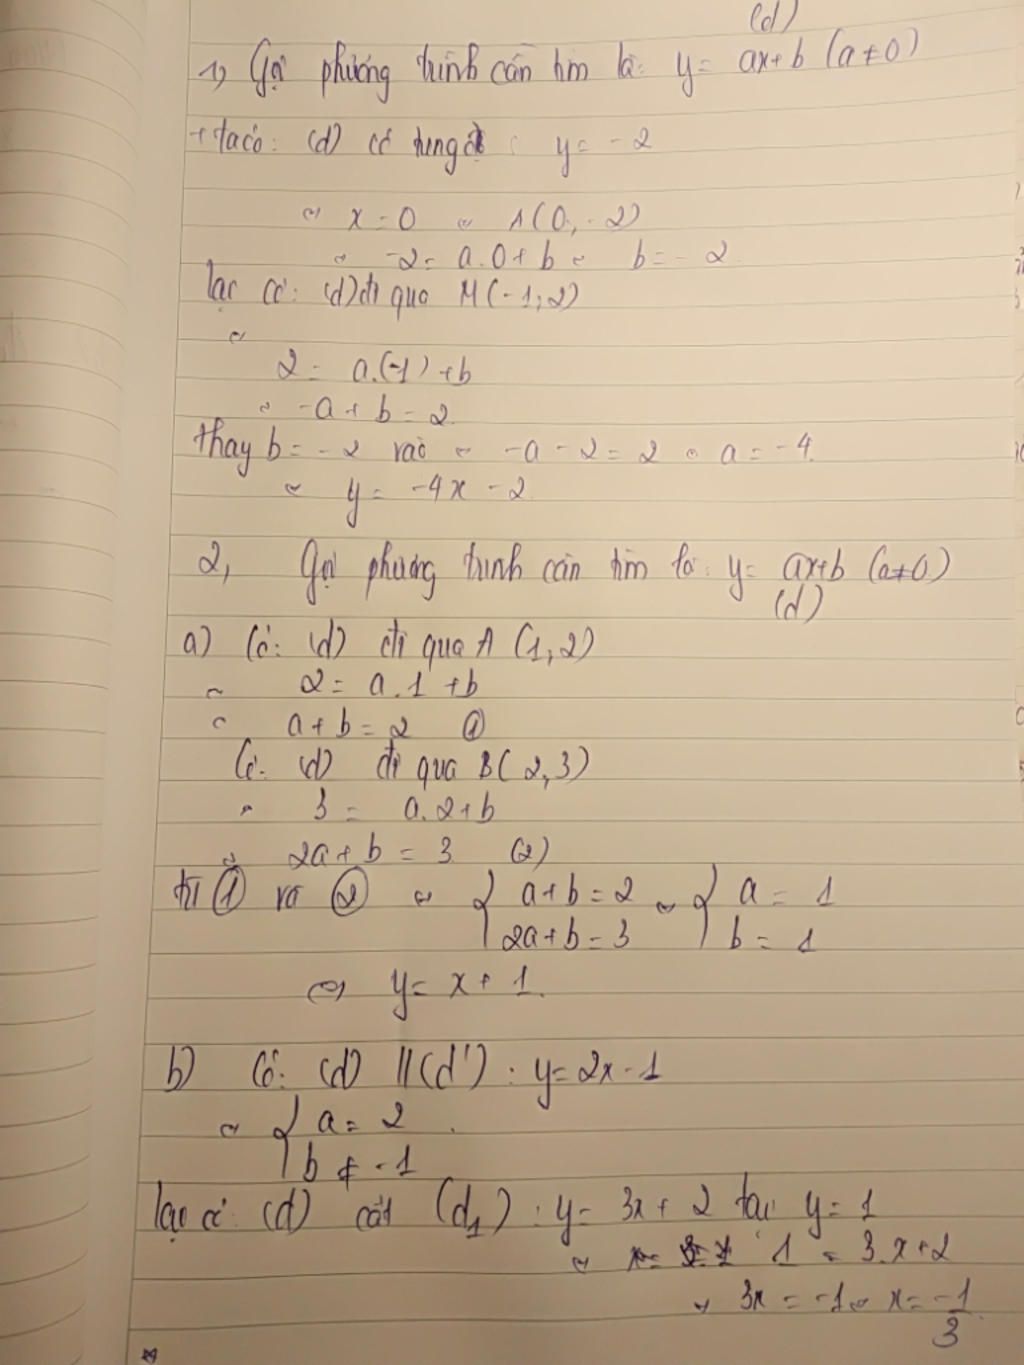 (d)
1, Gọi phương trình cần tìm là: y = ax+b (a≠0)
+ ta có: (d) có tung độ : y = -2
⇔ x = 0 ⇔ A(0,-2)
⇔ -2 = a.0+b ⇔ b = -2
lại có: (d) đi qua M(-1,2)
⇔
2 = a.(-1)+b
⇔ -a+b = 2
thay b = -2 vào ⇔ -a-2 = 2 ⇔ a = -4.
⇔ y = -4x-2
2, Gọi phương trình cần tìm là: y = ax+b (a≠0)
(d)
a) Có: (d) đi qua A (1,2)
⇔ 2 = a.1+b
⇔ a+b = 2 ①
Có: (d) đi qua B(2,3)
⇔ 3 = a.2+b
⇔ 2a+b = 3 (2)
từ ① và ② ⇔ { a+b = 2 ⇔ { a = 1
2a+b = 3 b = 1
⇔ y = x+1.
b) Có: (d) // (d') : y = 2x-1
⇔ { a = 2
b ≠ -1
lại có: (d) cắt (d₁) : y = 3x+2 tại y = 1
⇔ 1 = 3.x+2
⇔ 3x = -1 ⇔ x = -1
3